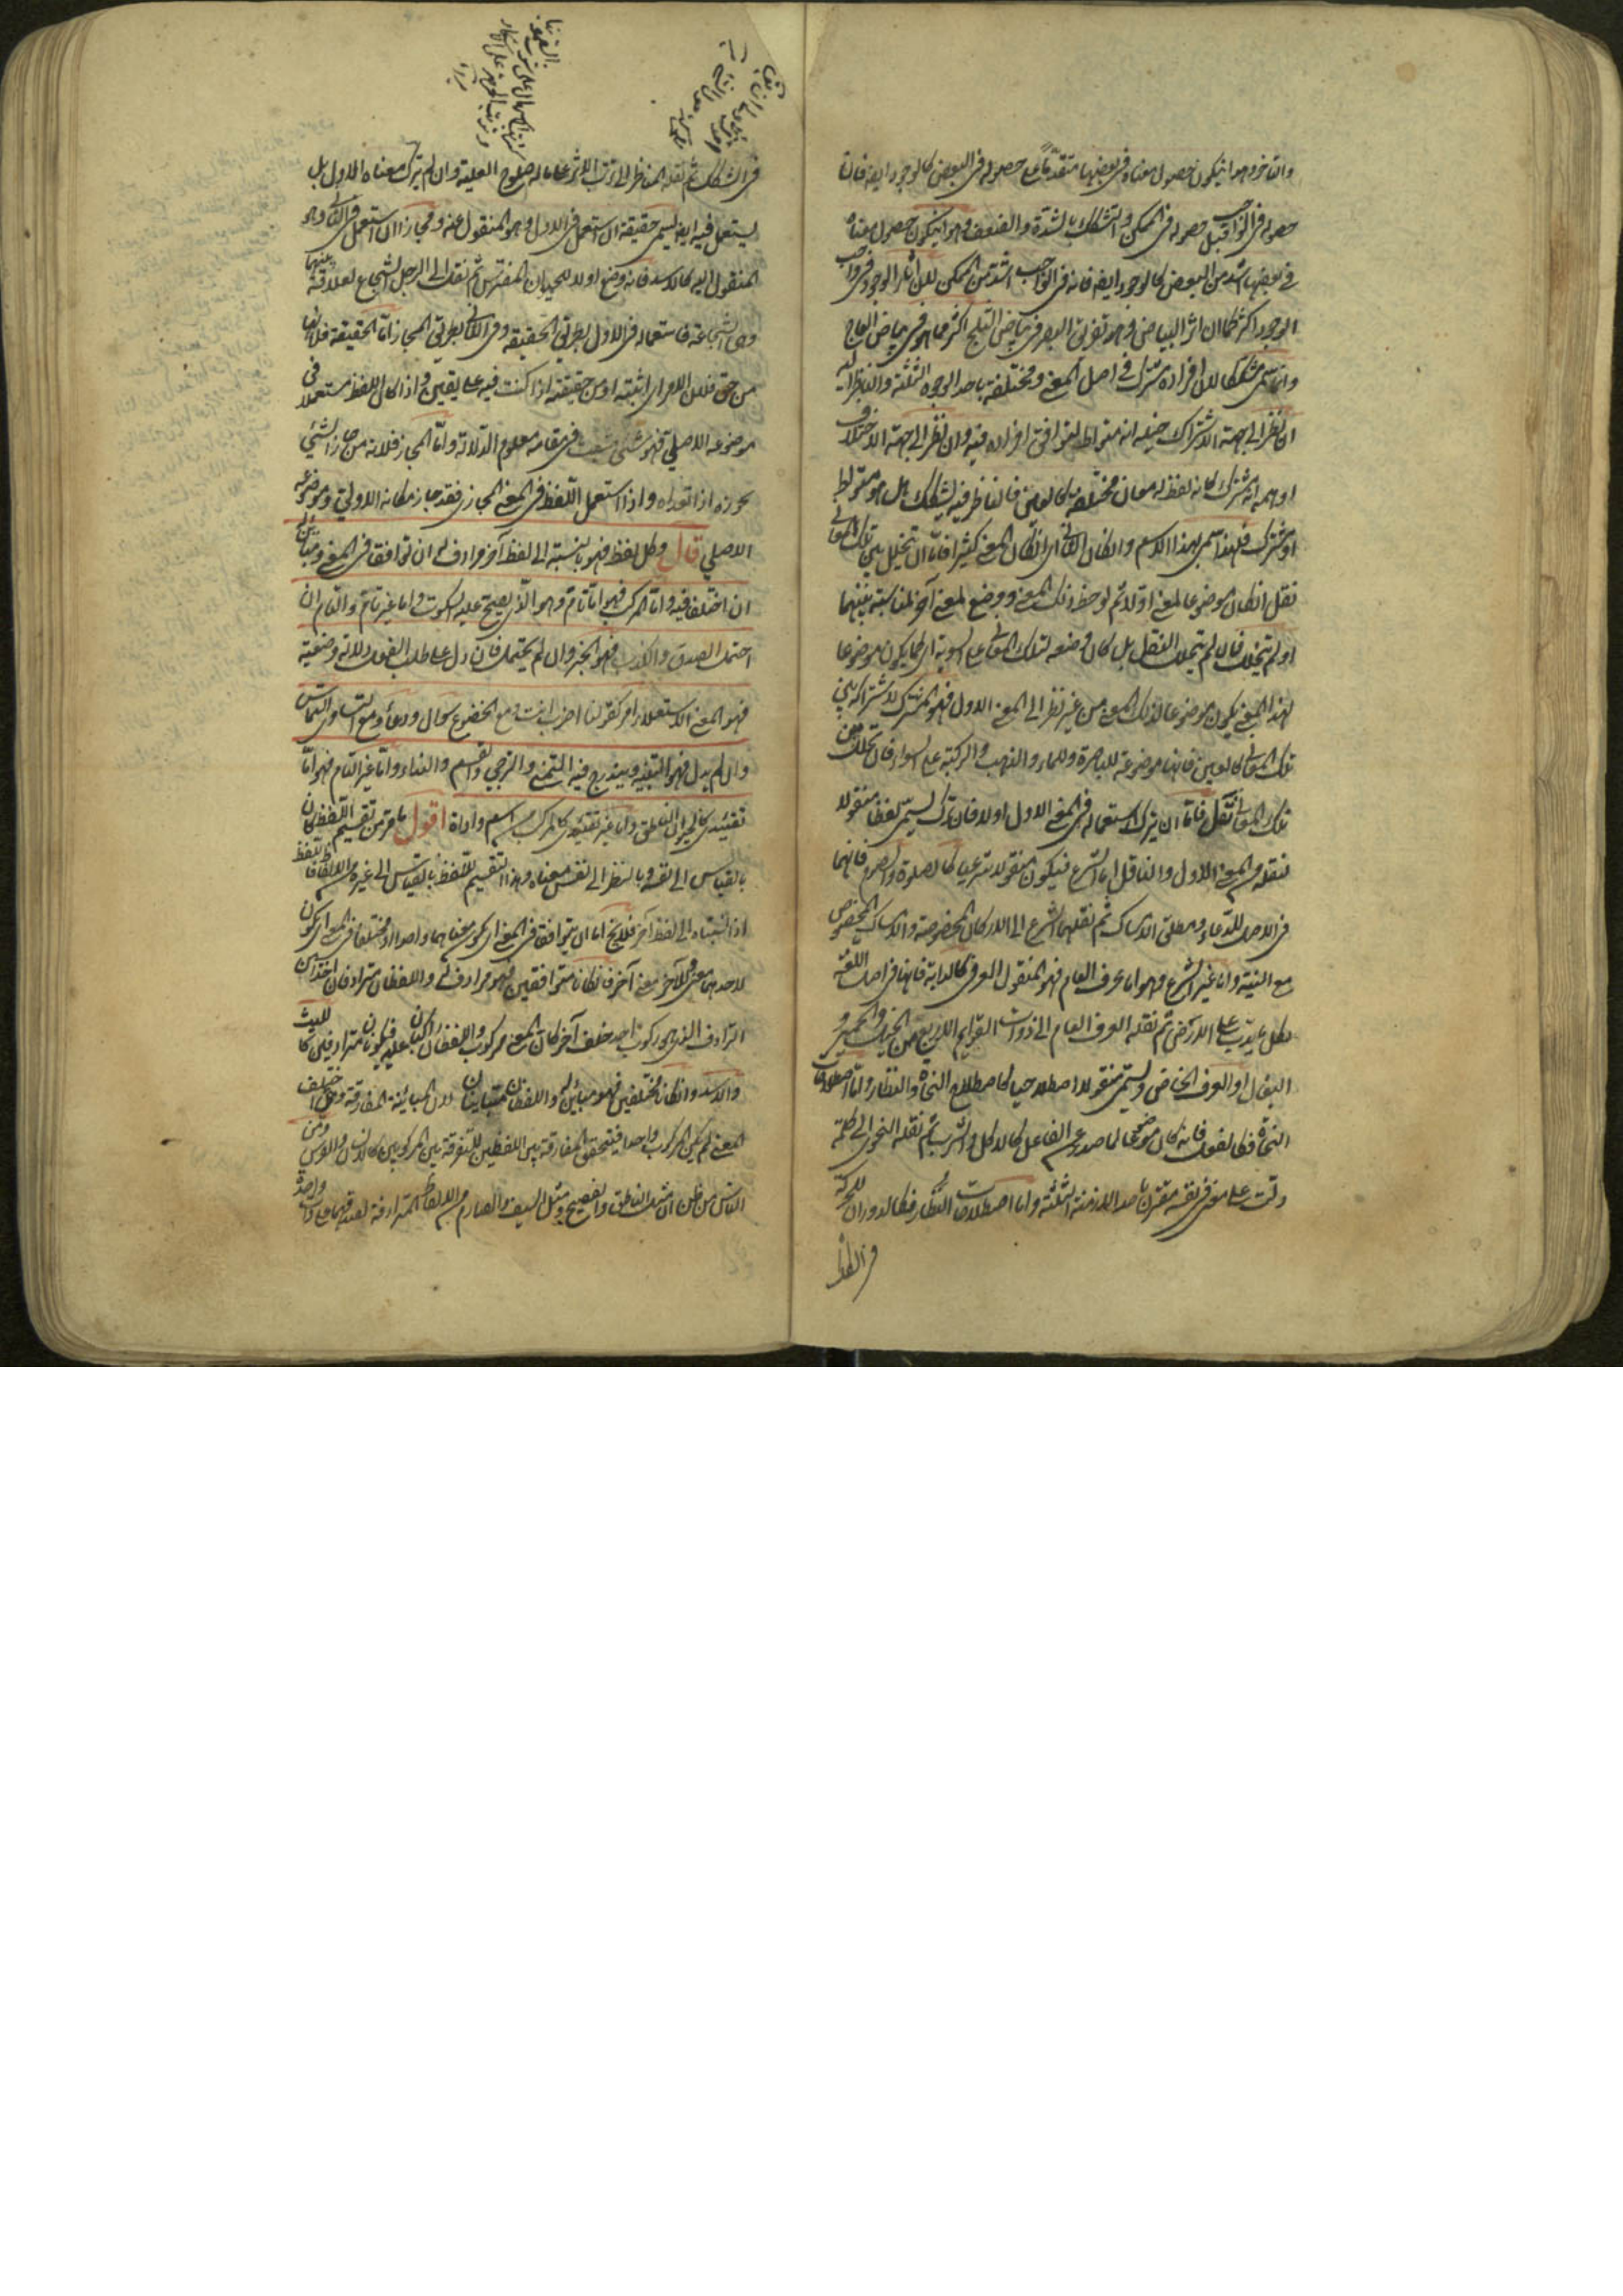 والتاخر وهو ان يكون حصول معناه في بعضها متقدما على حصوله في البعض كالوجود ايضا فان
حصوله في الواجب قبل حصوله في الممكن والتشكيك بالشدة والضعف وهو ان يكون حصول معناه
في بعضها اشد من البعض كالوجود ايضا فانه في الواجب اشد من الممكن لان اثار الوجود في واجب
الوجود اكثر كما ان اثر البياض وهو تفريق البصر في بياض الثلج اكثر مما هو في بياض العاج
وانما سمي مشككا لان افراده مشترك في اصل المعنى ومختلفة باحد الوجوه الثلثة والناظر اليه
ان نظر الى جهة الاشتراك خيله انه متواطئ لتوافق افراده فيه وان نظر الى جهة الاختلاف
اوهمه انه مشترك كانه لفظ له معان مختلفة كالعين فالناظر فيه يتشكك هل هو متواط
او مشترك فلهذا سمي بهذا الاسم وان كان الثاني اي ان كان المعنى كثيرا فاما ان يتخلل بين تلك المعاني
نقل ان كان موضوعا لمعنى اولا ثم لوحظ ذلك المعنى ووضع لمعنى آخر لمناسبة بينهما
او لم يتخلل فان لم يتخلل النقل بل كان وضعه لتلك المعاني على السوية اي كما يكون موضوعا
لهذا المعنى يكون موضوعا لذلك المعنى من غير نظر الى المعنى الاول فهو المشترك لاشتراكه بين
تلك المعاني كالعين فانها موضوعة للباصرة وللماء والذهب والركبة على السواء فان تخلل بين
تلك المعاني نقل فاما ان يترك استعماله في المعنى الاول اولا فان ترك يسمى لفظا منقولا
لنقله من المعنى الاول والناقل اما الشرع فيكون منقولا شرعيا كالصلوة والصوم فانهما
في الاصل للدعاء ومطلق الامساك ثم نقلهما الشرع الى الاركان المخصوصة والامساك المخصوص
مع النية واما غير الشرع وهو اما عرف العام فهو المنقول العرفي كالدابة فانها في اصل اللغة
لكل ما يدب على الارض ثم نقله العرف العام الى ذوات القوائم الاربع من الخيل والحمير و
البغال او العرف الخاص ويسمى منقولا اصطلاحيا كاصطلاح النحاة والنظار واما اصطلاحات
النحاة فكالفعل فانه كان موضوعا لما صدر عن الفاعل كالاكل والشرب ثم نقله النحوي الى كلمة
دلت على معنى في نفسه مقترن باحد الازمنة الثلثة واما اصطلاحات النظار فكالدوران للحركة
في السكك ثم نقله المناظر الى ترتب الاثر على ما له صلوح العلية وان لم يترك معناه الاول بل
يستعمل فيه ايضا يسمى حقيقة ان استعمل في الاول وهو المنقول عنه ومجازا ان استعمل في الثاني وهو
المنقول اليه كالاسد فانه وضع اولا للحيوان المفترس ثم نقل الى الرجل الشجاع لعلاقة بينهما
وهي الشجاعة فاستعماله في الاول بطريق الحقيقة وفي الثاني بطريق المجاز اما الحقيقة فلانها
من حق فلان الامر اي اثبته او من حققته اذا كنت فيه على يقين واذا كان اللفظ مستعملا في
موضوعه الاصلي فهو شئ مثبت في مقامه معلوم الدلالة واما المجاز فلانه من جاز الشئ
يجوزه اذا تعداه واذا استعمل اللفظ في المعنى المجازي فقد جاز مكانه الاولي وموضوعه
الاصلي قال وكل لفظ فهو بالنسبة الى لفظ آخر مرادف له ان توافقا في المعنى ومباين له
ان اختلفا فيه واما المركب فهو اما تام وهو الذي يصح عليه السكوت واما غير تام والتام ان
احتمل الصدق والكذب فهو الخبر وان لم يحتمل فان دل على طلب الفعل دلالة وضعية
فهو مع الاستعلاء امر كقولنا اضرب انت ومع الخضوع سؤال ودعاء ومع التساوي التماس
وان لم يدل فهو التنبيه ويندرج فيه التمني والترجي والقسم والنداء واما غير التام فهو اما
تقييدي كالحيوان الناطق واما غير تقييدي كالمركب من اسم واداة اقول ما مر من تقسيم اللفظ كان
بالقياس الى نفسه وبالنظر الى نفس معناه وهذا التقسيم للفظ بالقياس الى غيره من الالفاظ فاللفظ
اذا نسبناه الى لفظ آخر فلا يخ اما ان يتوافقا في المعنى اي يكون معناهما واحدا او مختلفا في المعنى اي يكون
لاحدهما معنى وللآخر معنى آخر فان كانا متوافقين فهو مرادف له واللفظان مترادفان اخذا من
الترادف الذي هو ركوب احد خلف آخر كان المعنى مركوب واللفظان راكبان عليه فيكونان مترادفين كالليث
والاسد وان كانا مختلفين فهو مباين له واللفظان متباينان لان المباينة المفارقة ومتى اختلف
المعنى لم يكن المركوب واحدا فيتحقق المفارقة بين اللفظين للتفرقة بين المركوبين كالانسان والفرس ومن
الناس من ظن ان مثل الناطق والفصيح ومثل السيف والصارم من الالفاظ المترادفة لصدقهما على ذات واحدة